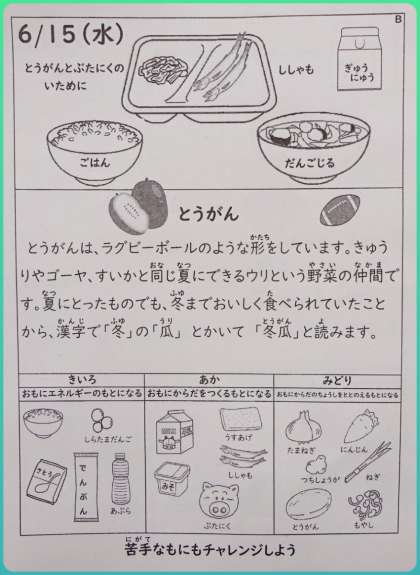 B
6/15(水)
とうがんとぶたにくの
いために
ししゃも
ぎゅう
にゅう
ごはん
だんごじる
とうがん
とうがんは、ラグビーボールのような形をしています。きゅう
りやゴーヤ、すいかと同じ夏にできるウリという野菜の仲間で
す。夏にとったものでも、冬までおいしく食べられていたこと
から、漢字で「冬」の「瓜」とかいて「冬瓜」と読みます。
きいろ
あか
みどり
おもにエネルギーのもとになる
おもにからだをつくるもとになる
おもにからだのちょうしをととのえるもとになる
しらたまだんご
さとう
でんぷん
あぶら
うすあげ
ししゃも
みそ
ぶたにく
たまねぎ
にんじん
つちしょうが
ねぎ
とうがん
もやし
苦手なもにもチャレンジしよう